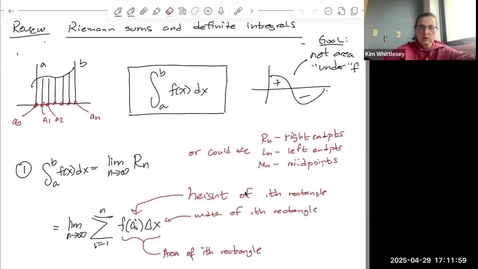 Review Riemann sums and definite integrals
Goal:
net area
"under" f
a b
+ −
a₀ a₁ a₂ aₙ
∫ₐᵇ f(x) dx
or could use
Rₙ – right endpts
Lₙ – left endpts
Mₙ – midpoints
① ∫ₐᵇ f(x) dx = lim n→∞ Rₙ
height of ith rectangle
= lim n→∞ ∑ i=1 n f(aᵢ) Δx
width of ith rectangle
Area of ith rectangle
Kim Whittlesey
2025-04-29 17:11:59